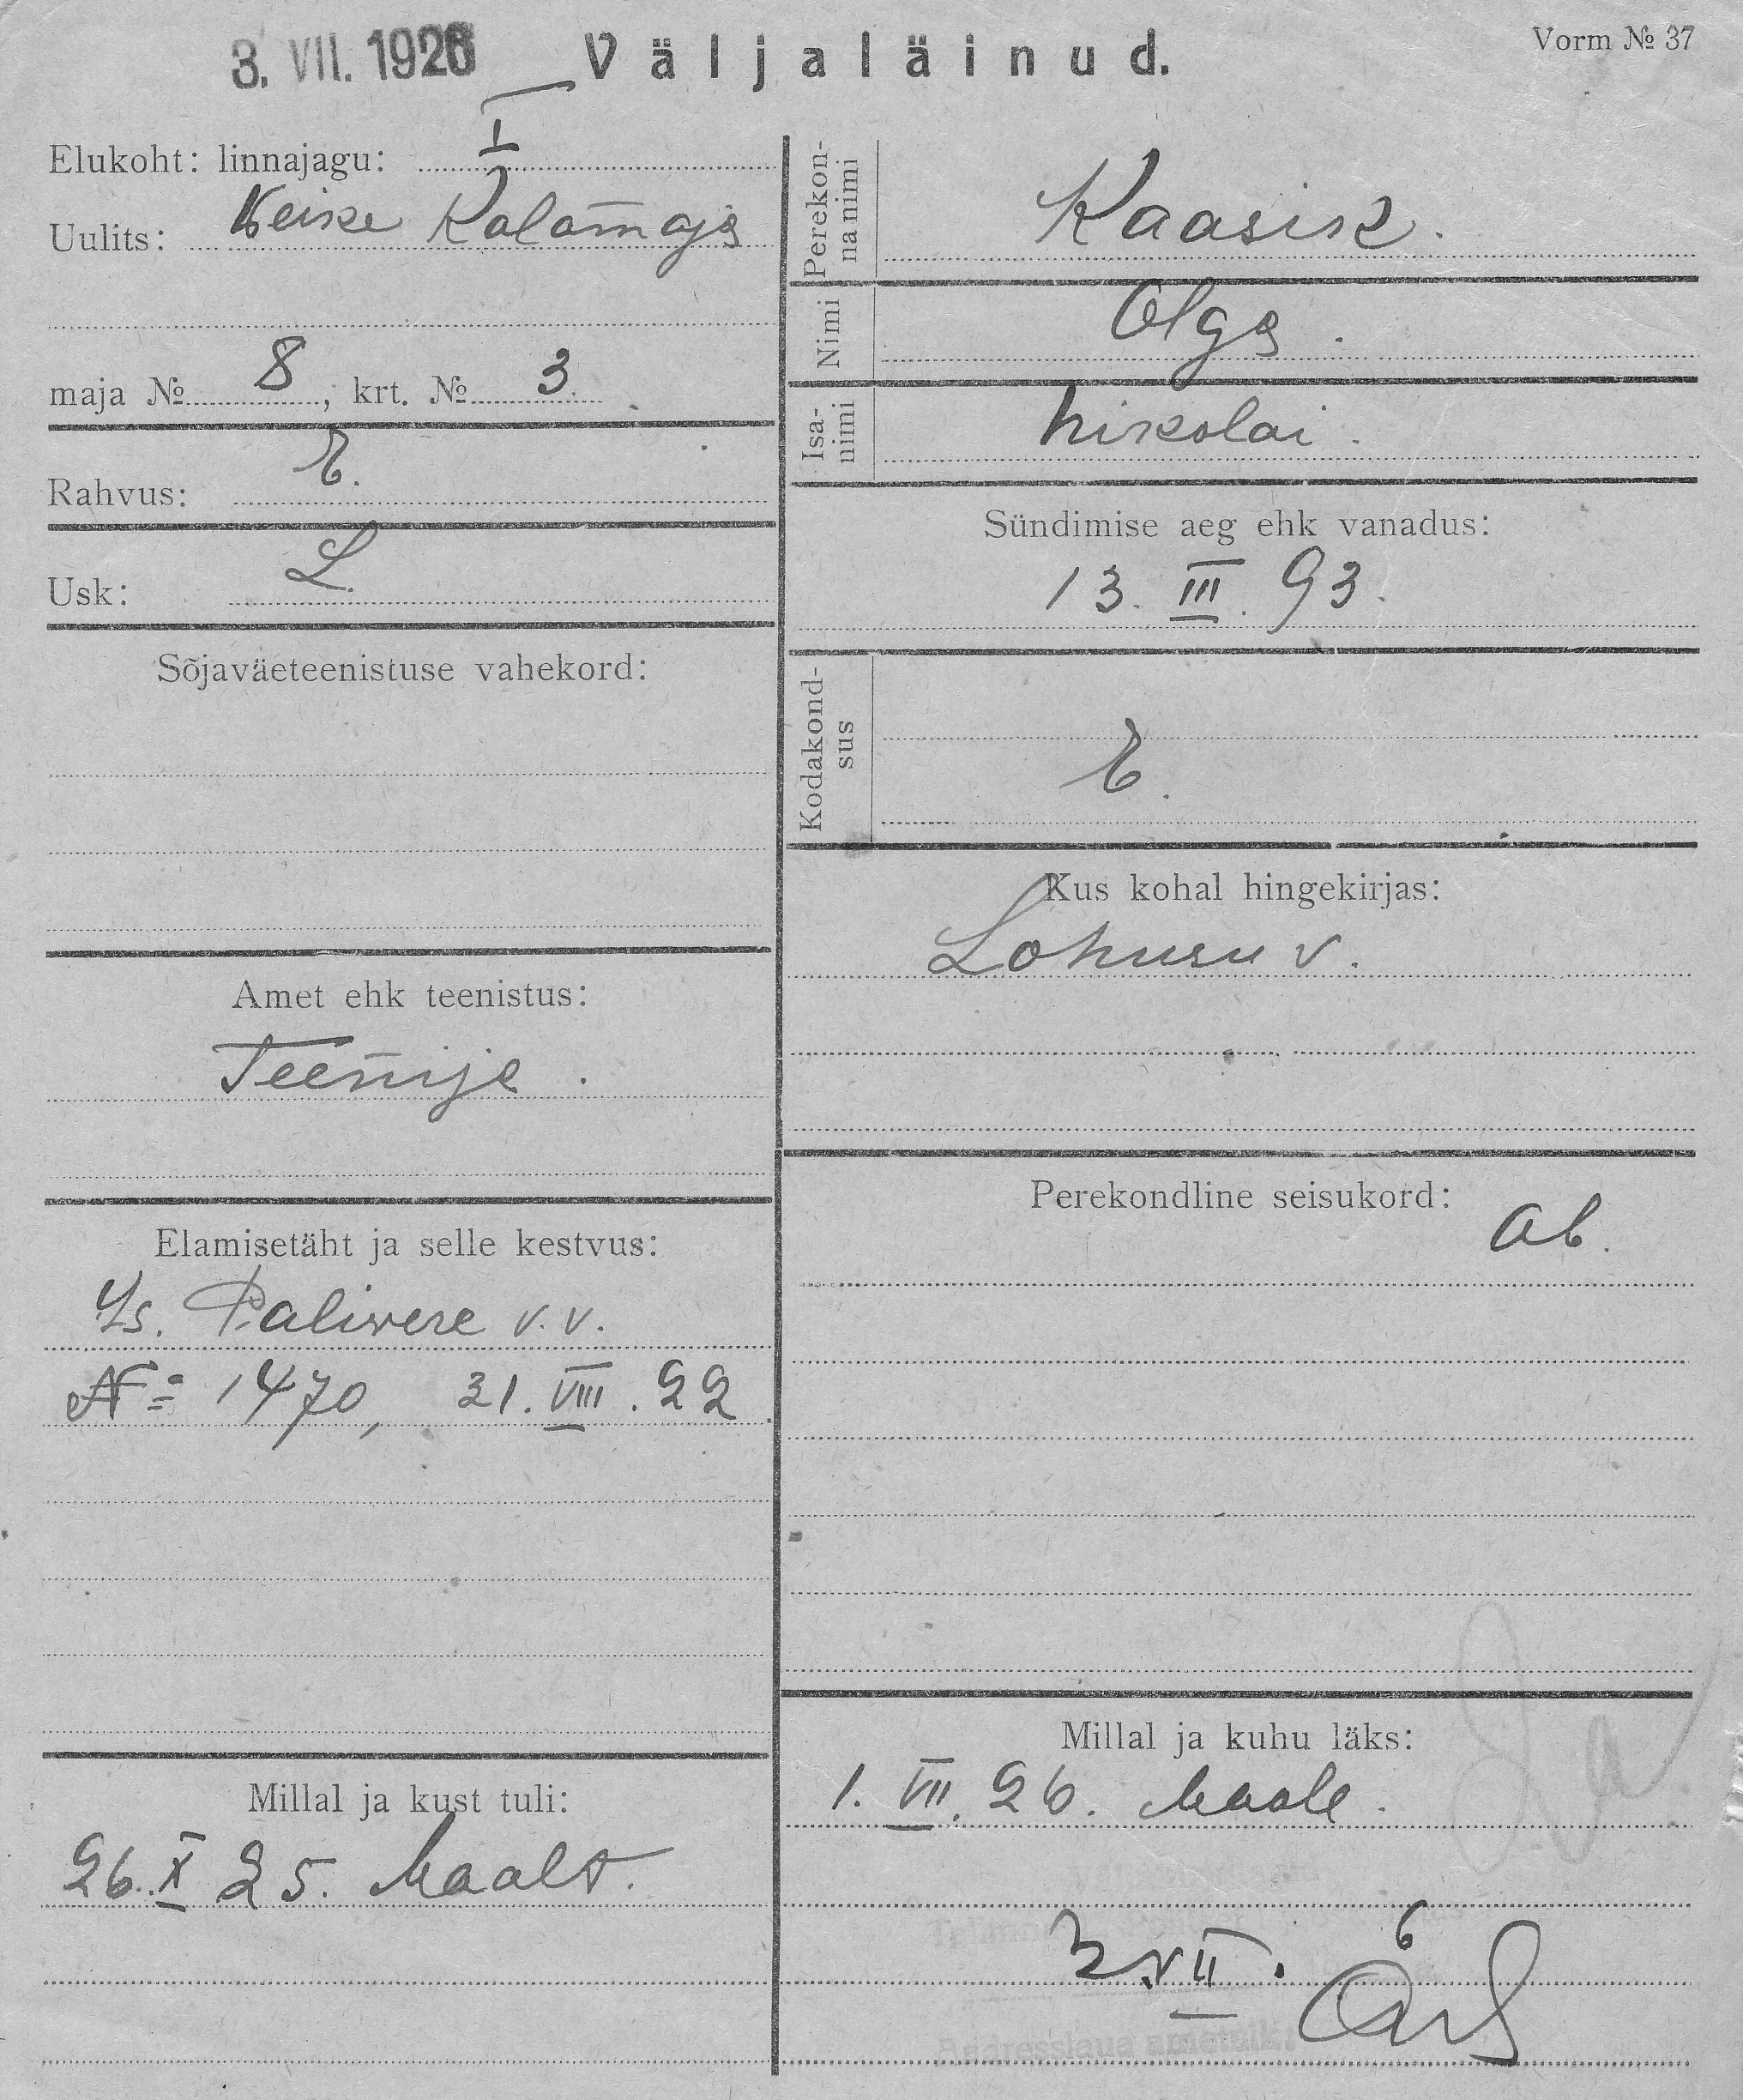 3. VII. 1926
Väljaläinud.
Vorm № 37
Elukoht: linnajagu: I
Uulits: Veike Kalamaja
maja № 8, krt. № 3.
Rahvus: E.
Usk: L.
Sõjaväeteenistuse vahekord:
Amet ehk teenistus:
Teenija.
Elamisetäht ja selle kestvus:
Is. Paliwere v. v.
№ 1470, 31. VIII. 22.
Millal ja kust tuli:
26. X 25. Maalt.
Perekonna nimi
Kaasik.
Nimi
Olga.
Isanimi
Nikolai.
Sündimise aeg ehk vanadus:
13. III. 93.
Kodakondsus
E.
Kus kohal hingekirjas:
Lohusu v.
Perekondline seisukord:
ab.
Millal ja kuhu läks:
1. VII. 26. Maale.
3 VII. 6